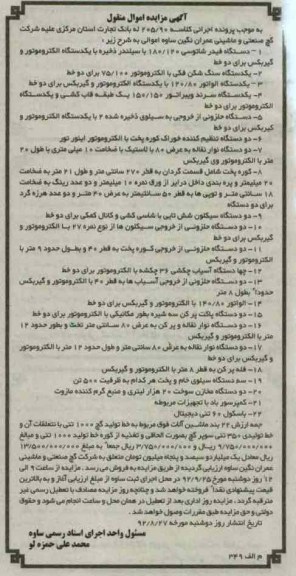 آگهی مزایده اموال منقول
به موجب پرونده اجرائی کلاسه ۲۰۵/۹۰ له بانک تجارت استان مرکزی علیه شرکت
گچ صنعتی و ماشینی عمران نگین ساوه اموالی به شرح زیر :
۱ - دستگاه فیدر شاتوسی ۱۸۰/۱۲۰ با سیلندر ذخیره با یکدستگاه الکتروموتور و
گیربکس برای دو خط
۲- یکدستگاه سنگ شکن فکی با الکتروموتور ۷۵/۱۰۰ برای دو خط
۳- یکدستگاه الواتور ۱۲۰/۸۰ با یکدستگاه الکتروموتور و گیربکس برای دو خط
۴- یکدستگاه سرند ویبراتور ۱۵۰/۱۵۰ یک طبقه قاب کشی و یکدستگاه
الکتروموتور برای دو خط
۵- دستگاه حلزونی از خروجی به سیلوی ذخیره شده ۲ با یکدستگاه الکتروموتور و
گیربکس برای دو خط
۶- دو دستگاه تنظیم کننده خوراک کوره پخت با الکتروموتور اینور تور
۷- دو دستگاه نوار نقاله به عرض ۸۰ با لاستیک با ضخامت ۱۰ میلی متری با طول ۲۰
متر با الکتروموتور وی گیربکس
۸- کوره پخت شامل قسمت گردان به قطر ۲۷۰ سانتی متر و طول ۲۱ متر به ضخامت
۲۰ میلیمتر و پره بندی داخل درایر از ورق نمره ۱۰ میلیمتر و دو عدد رینگ به ضخامت
۱۸ سانتی متر و توپی ها به قطر ۵۰ سانتیمتر به عرض ۴۰ متر و دو عدد هرزه گرد
برای دو دستگاه
۹- دو دستگاه سیکلون شش تایی با شاسی کشی و کانال کمکی برای دو خط
۱۰- دو دستگاه حلزونی از خروجی سیکلون ها از نوع نمره ۲۷ با الکتروموتور و
گیربکس برای دو خط
۱۱- دو دستگاه حلزونی از خروجی کوره پخت به قطر ۴۰ و بطول حدود ۹ متر با
الکتروموتور و گیربکس
۱۲- چها دستگاه آسیاب چکشی ۳۶ چکشه با الکتروموتور برای دو خط
۱۳- دو دستگاه حلزونی از خروجی آسیاب ها به قطر ۴۰ با الکتروموتور و گیربکس
حدودا" بطول ۸ متر
۱۴- الواتور ۱۴۰/۸۰ با الکتروموتور و گیربکس برای دو خط
۱۵- دو دستگاه پاکت پر کن سه شیره بطور مکانیکی با الکتروموتور برای دو خط
۱۶- دو دستگاه نوار نقاله و پر کن به عرض ۸۰ سانتی متر تخت و بطور حدود ۱۲
متر با الکتروموتور و گیربکس
۱۷- دو دستگاه نوار نقاله به عرض ۸۰ سانتی متر و طول حدود ۱۲ متر با الکتروموتور
و گیربکس برای دو خط
۱۸- فله پر کن به قطر ۸ متر با گیربکس
۱۹- سه دستگاه سیلوی خام و پخت هر کدام به ظرفیت ۵۰۰ تن
۲۰- دو دستگاه مخازن سوخت ۲۰ هزار لیتری و منبع گرم کننده مازوت
۲۱- کمپرسور باد با تجهیزات مربوطه
۲۲- باسکول ۶۰ تنی دیجیتال
جمعا ارزش ۲۲ بند ماشین آلات فوق مربوط به خط تولید گچ ۱۰۰۰ تنی با متعلقات آن و
خط تولیدی ۳۵۰ تنی سوپر گچ بصورت الحاقی و تغذیه از کوره خط تولید ۱۰۰۰ تنی و مبالغ
۹/۷۵۰/۰۰۰/۰۰۰ ریال و ۳/۷۵۰/۰۰۰/۰۰۰ ریال جمعا" به مبلغ ۱۳/۵۰۰/۰۰۰/۰۰۰
ریال معادل یک میلیارد و سیصد و پنجاه میلیون تومان متعلق به شرکت گچ صنعتی و ماشینی
عمران نگین ساوه ارزیابی گردیده از طریق مزایده به فروش می رسد . مزایده از ساعت ۹ الی
۱۲ روز دوشنبه مورخ ۹۲/۹/۲۵ در محل اجرای ثبت ساوه از مبلغ ارزیابی آغاز و به بالاترین
قیمت پیشنهادی نقدا" فروخته خواهد شد و چنانچه روز مزایده مصادف با تعطیل رسمی غیر
مترقبه گردد . مزایده روز اداری بعد از تعطیل در همان محل و ساعت انجام می شود و حقوق
دولتی و حق مزایده طبق مقررات وصول خواهد شد .
تاریخ انتشار روز دوشنبه مورخه ۹۲/۸/۲۷
مسئول واحد اجرای اسناد رسمی ساوه
محمد علی حمزه لو
م الف ۳۴۹